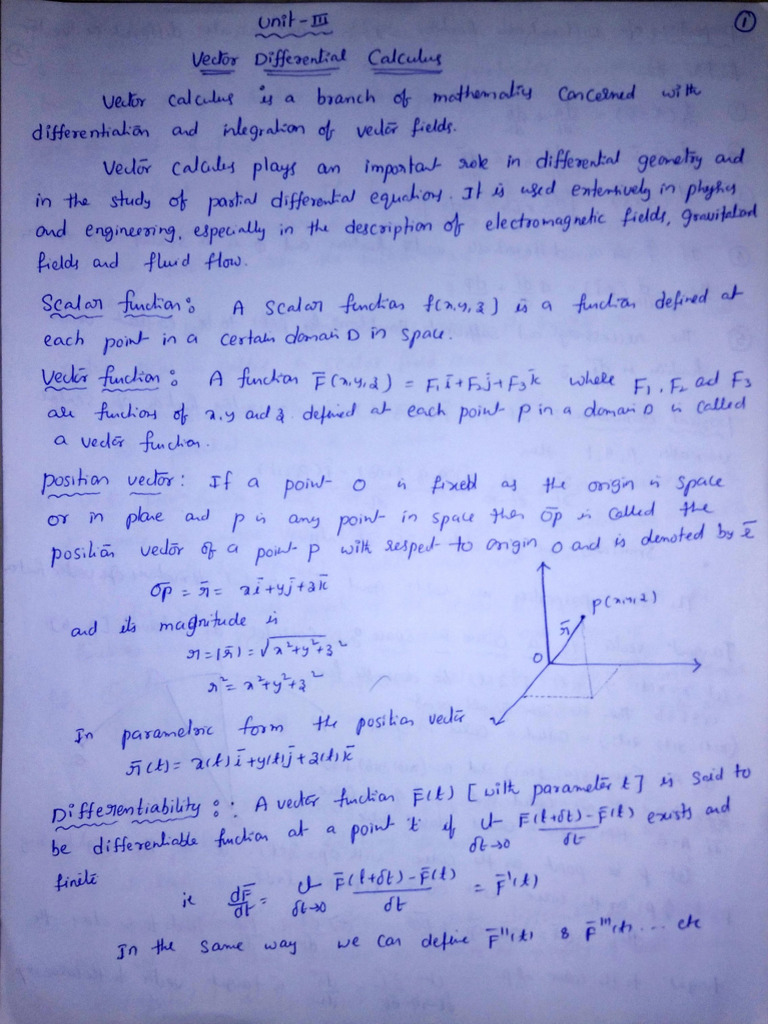 1
Unit-III
Vector Differential Calculus
Vector calculus is a branch of mathematics concerned with
differentiation and integration of vector fields.
Vector calculus plays an important role in differential geometry and
in the study of partial differential equations. It is used extensively in physics
and engineering, especially in the description of electromagnetic fields, gravitational
fields and fluid flow.
Scalar function: A scalar function f(x,y,z) is a function defined at
each point in a certain domain D in space.
Vector function: A function F̄(x,y,z) = F₁ī+F₂j̄+F₃k̄ where F₁, F₂ and F₃
are functions of x,y and z defined at each point P in a domain D is called
a vector function.
Position vector: If a point O is fixed as the origin in space
or in plane and P is any point in space then O̅P̅ is called the
position vector of a point P with respect to origin O and is denoted by r̄
O̅P̅ = r̄ = xī+yj̄+zk̄
and its magnitude is
r=|r̄|=√x²+y²+z²
r²=x²+y²+z²
P(x,y,z)
r̄
O
In parametric form the position vector
r̄(t)= x(t)ī+y(t)j̄+z(t)k̄
Differentiability:: A vector function F̄(t) [with parameter t] is said to
be differentiable function at a point 't' if Lt δt→0 F̄(t+δt)-F̄(t)/δt exists and
finite
ie dF̄/δt = Lt δt→0 F̄(t+δt)-F̄(t)/δt = F̄'(t)
In the same way we can define F̄''(t) & F̄'''(t), ... etc